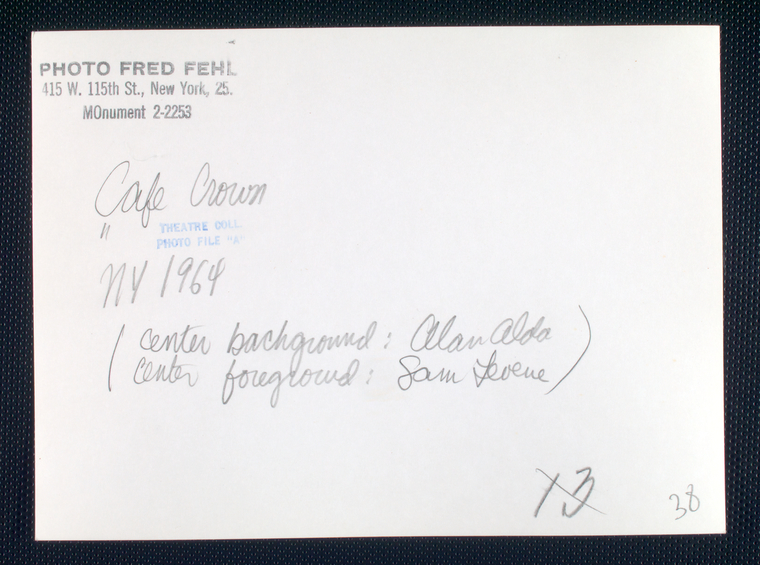 PHOTO FRED FEHL
415 W. 115th St., New York, 25.
MOnument 2-2253
Cafe Crown
"
THEATRE COLL.
PHOTO FILE "A"
NY 1964
( center background: Alan Alda )
( center foreground: Sam Levene )
13
38